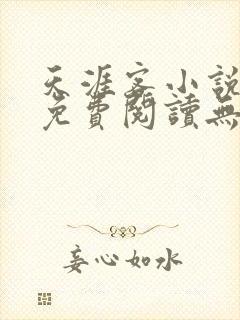 天涯客小說
免費閱讀無
妄心如水